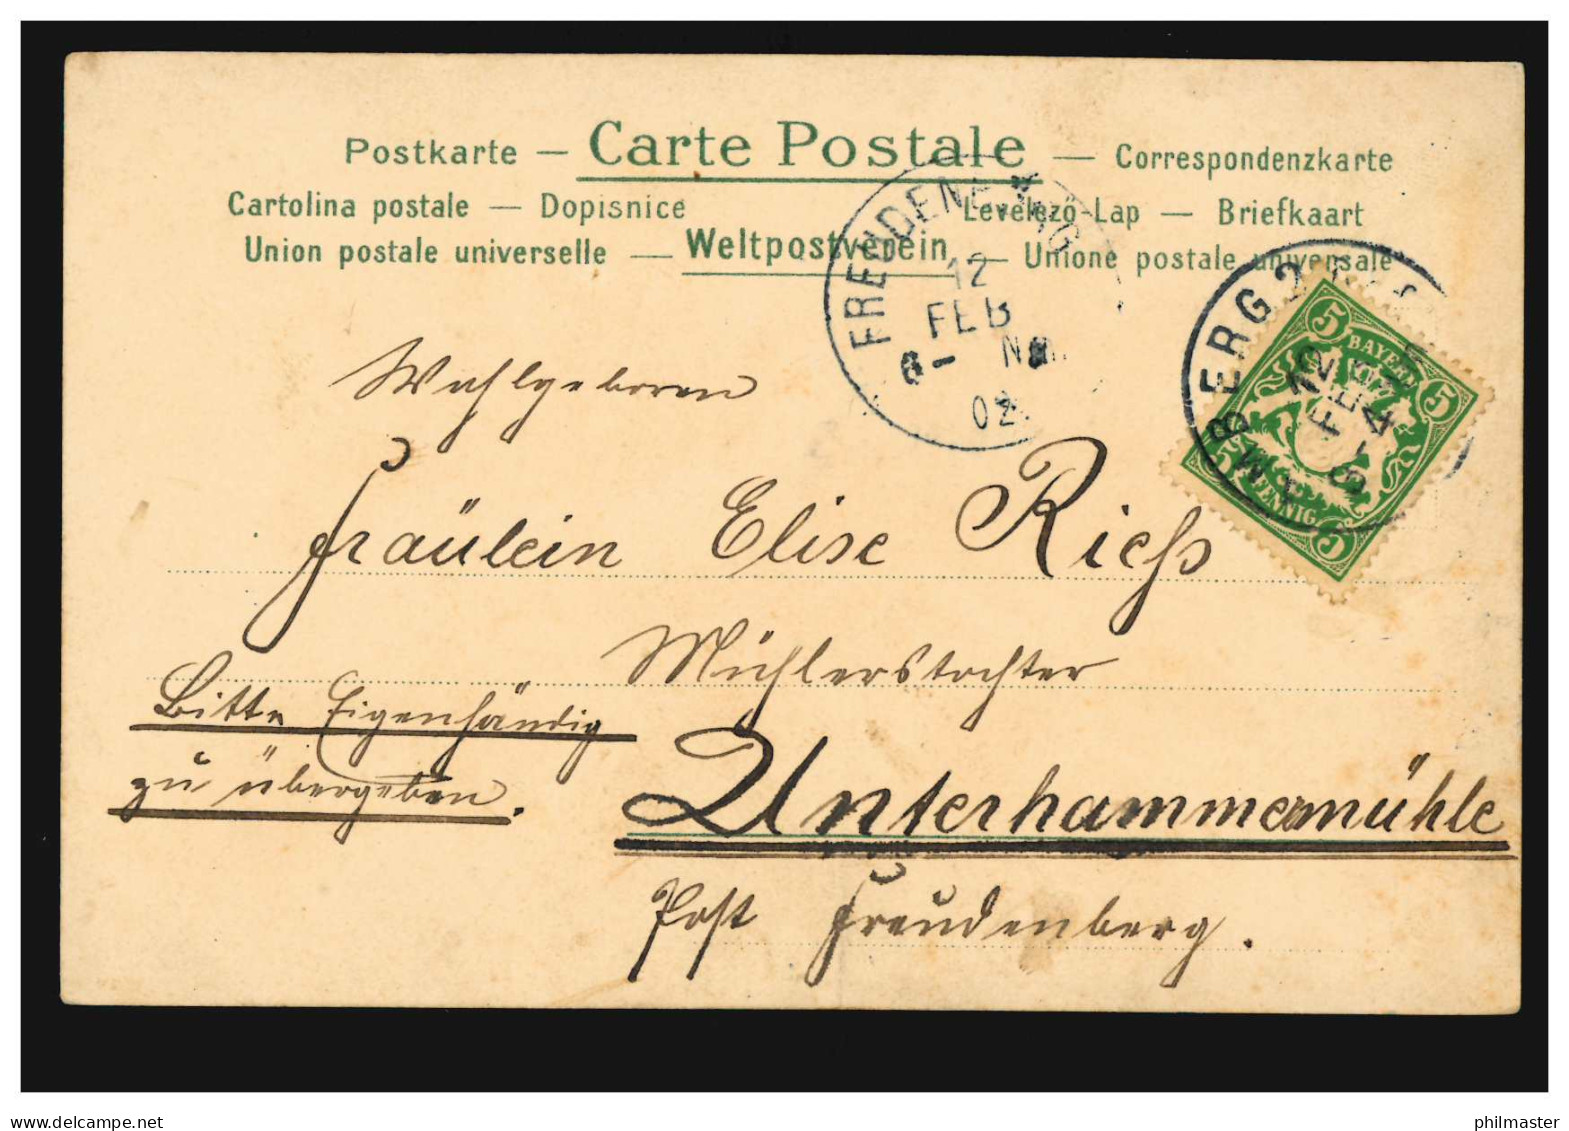 Postkarte — Carte Postale — Correspondenzkarte
Cartolina postale — Dopisnice Levelező-Lap — Briefkaart
Union postale universelle — Weltpostverein — Unione postale universale
FREUDENBERG
12
FEB
6 - Nm.
02
AMBERG 2
12
FEB
5 BAYERN 5
5 PFENNIG 5
Wohlgeboren
Fräulein Elise Rieß
Mühlerstochter
Bitte Eigenhändig
zu übergeben.
Unterhammermühle
Post Freudenberg.
www.delcampe.net
philmaster